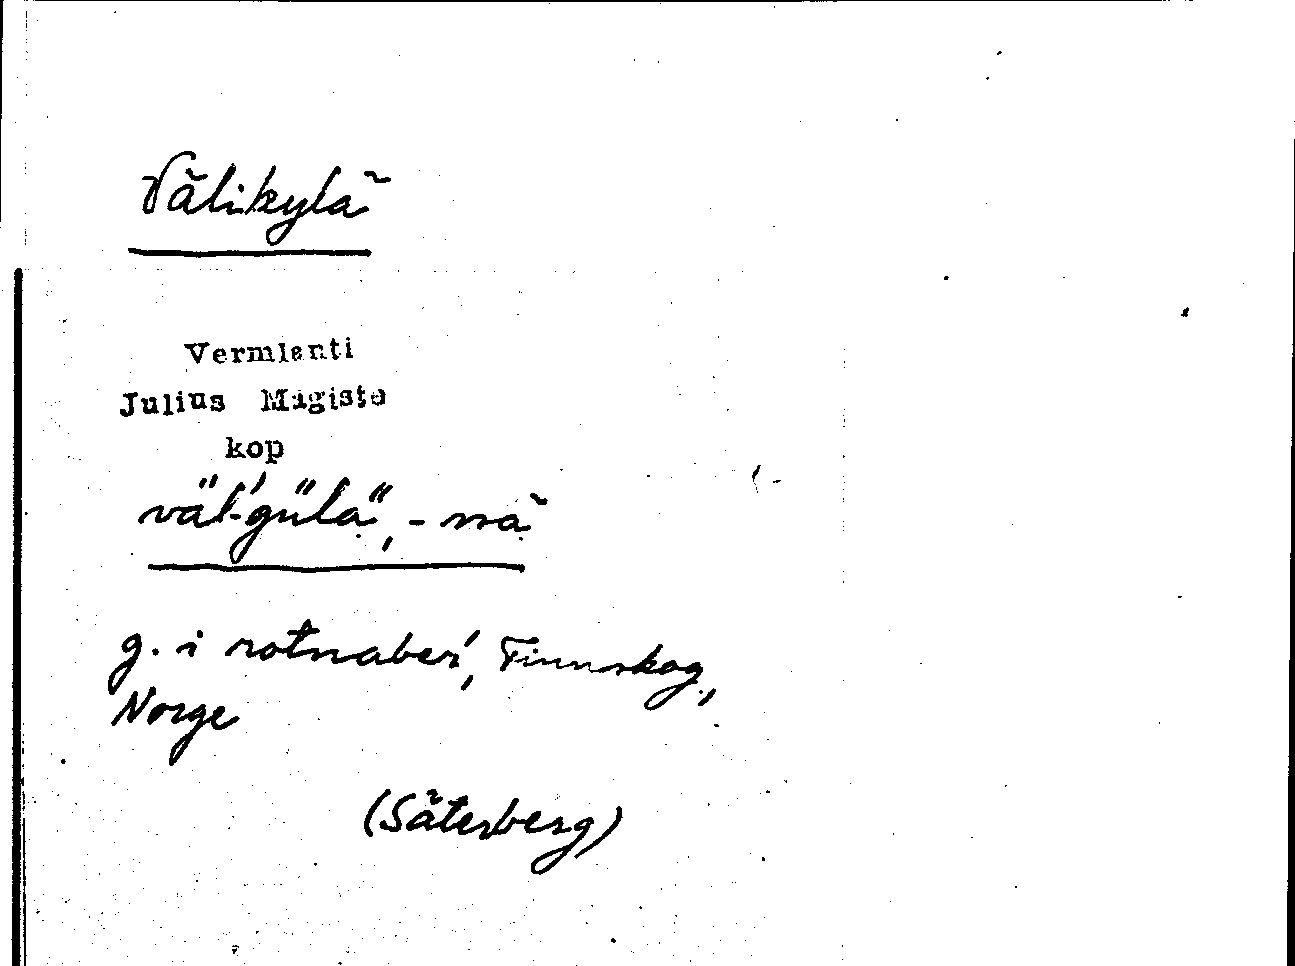 Välikylä
Vermlanti
Julius Mägiste
kop
väl'-gülä, -ssä
g. i rotnaberi', Finnskog,
Norge
(Säterberg)